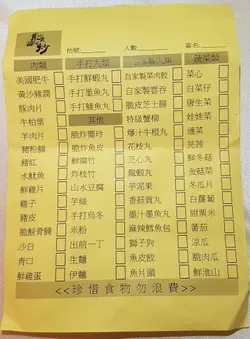 枱號 人數 簽名
肉類 手打丸類 自家製丸類 蔬菜類
美國肥牛 手打鮮蝦丸 自家製菜肉餃 菜心
黃沙豬潤 手打墨魚丸 自家製雲吞 白菜仔
豚肉片 手打鯪魚丸 脆皮芝士腸 唐生菜
牛柏葉 其他 特級蟹柳 娃娃菜
羊肉片 脆炸響玲 爆汁牛櫈丸 通菜
豬粉腸 脆炸魚皮 花枝丸 菠菜
豬紅 鮮腐竹 芝心丸 鮮冬菇
水魷魚 炸枝竹 龍蝦丸 金菇菜
鮮雞片 山水豆腐 芋泥果 冬瓜片
雞子 芋絲 墨西哥丸 白蘿蔔
豬皮 手打烏冬 墨汁墨魚丸 甜粟米
脆鯇骨腩 米粉 麻辣鱈魚包 蕃茄
沙白 出前一丁 獅子狗 涼瓜
青口 生麵 魚皮餃 脆肉瓜
鮮雞蛋 伊麵 魚片頭 鮮淮山
<<珍惜食物勿浪費>>